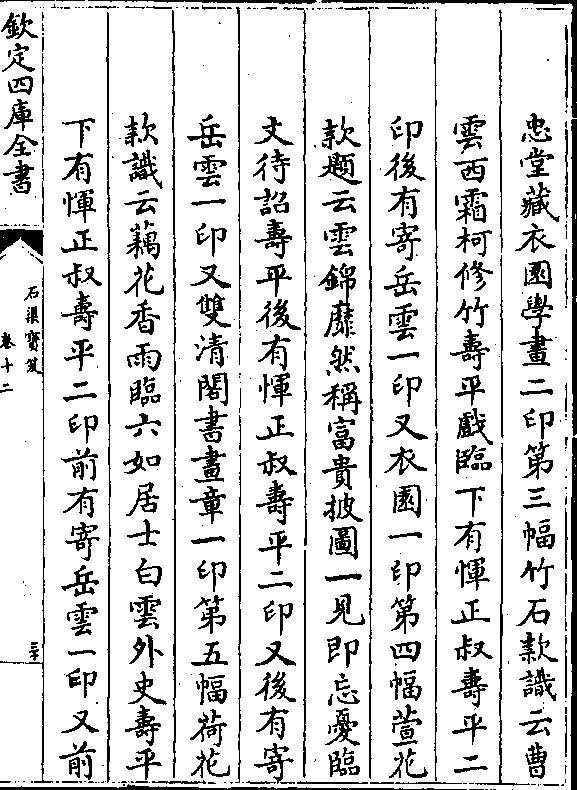 忠堂藏衣園學畫二印第三幅竹石款識云曹
雲西霜柯修竹壽平戲臨下有惲正叔壽平二
印後有寄岳雲一印又衣園一印第四幅萱花
款題云雲錦靡然稱富貴披圖一見即忘憂臨
文待詔壽平後有惲正叔壽平二印又後有寄
岳雲一印又雙清閣書畫章一印第五幅荷花
款識云藕花香雨臨六如居士白雲外史壽平
下有惲正叔壽平二印前有寄岳雲一印又前
欽定四庫全書
石渠寶笈
卷十二